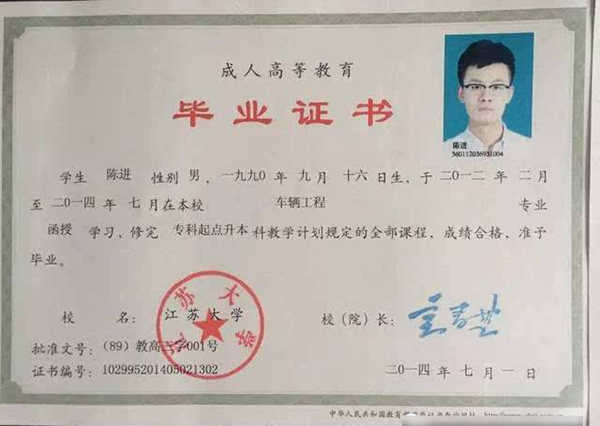 成人高等教育
毕业证书
陈进
360112036931004
学生 陈进 性别 男，一九九0年 九月 十六日生，于二0一二年 二月
至二0一四年 七月在本校 车辆工程 专业
函授 学习，修完 专科起点升本 科教学计划规定的全部课程，成绩合格，准予
毕业。
江苏大学
校 名： 江苏大学 校（院）长：
批准文号：（89）教高 字001号
证书编号：102995201405021302 二0一四年 七月 一日
中华人民共和国教育